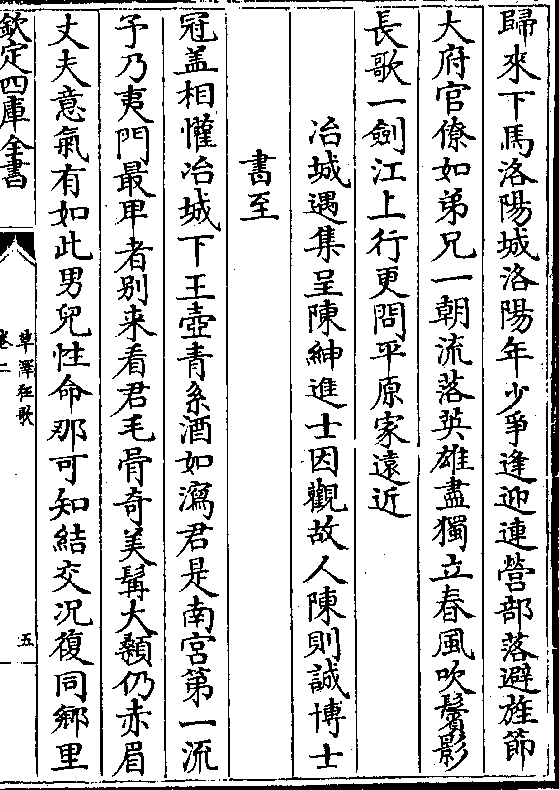 歸來下馬洛陽城洛陽年少爭逢迎連營部落避旌節
大府官僚如弟兄一朝流落英雄盡獨立春風吹鬢影
長歌一劍江上行更問平原家遠近
冶城遇集呈陳紳進士因觀故人陳則誠博士
書至
冠盖相懽冶城下王壺青糸酒如瀉君是南宮第一流
予乃夷門最甲者别来看君毛骨奇美髯大顙仍赤眉
丈夫意氣有如此男兒性命那可知結交况復同鄉里
欽定四庫全書
草澤狂歌
卷二
五